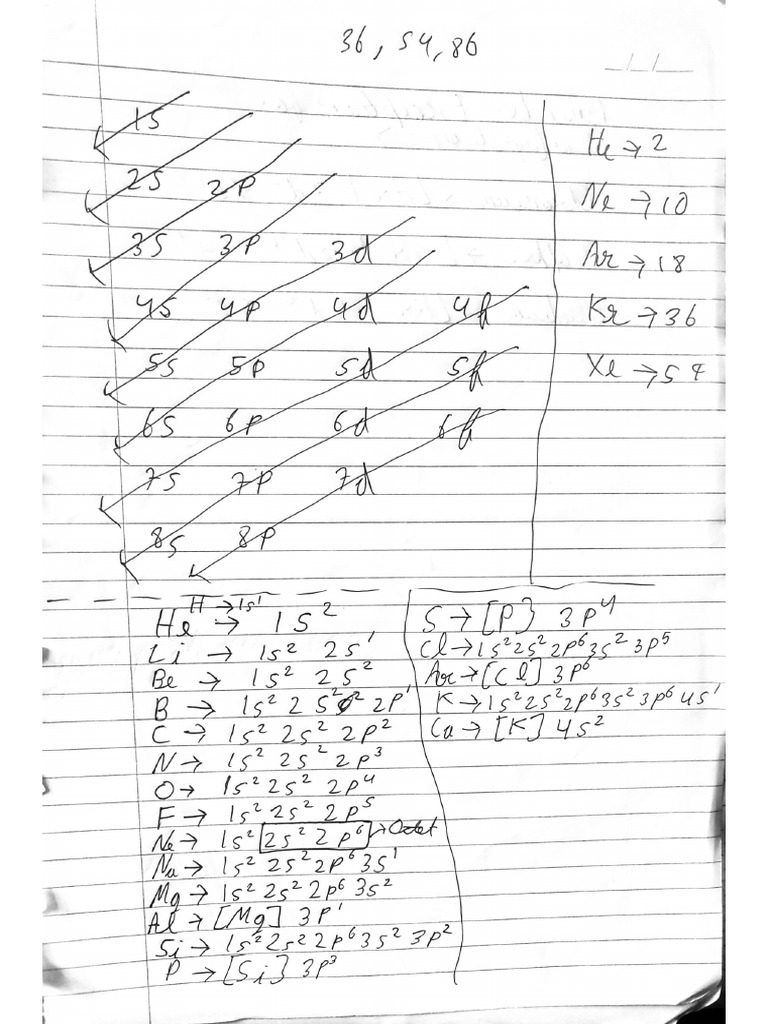 36, 54, 86
__/__/__
1s
2s 2p
3s 3p 3d
4s 4p 4d 4f
5s 5p 5d 5f
6s 6p 6d 6f
7s 7p 7d
8s 8p
He → 2
Ne → 10
Ar → 18
Kr → 36
Xe → 54
H → 1s¹
He → 1s²
Li → 1s² 2s¹
Be → 1s² 2s²
B → 1s² 2s² 2p¹
C → 1s² 2s² 2p²
N → 1s² 2s² 2p³
O → 1s² 2s² 2p⁴
F → 1s² 2s² 2p⁵
Ne → 1s² 2s² 2p⁶ → Octet
Na → 1s² 2s² 2p⁶ 3s¹
Mg → 1s² 2s² 2p⁶ 3s²
Al → [Mg] 3p¹
Si → 1s² 2s² 2p⁶ 3s² 3p²
P → [Si] 3p³
S → [P] 3p⁴
Cl → 1s² 2s² 2p⁶ 3s² 3p⁵
Ar → [Cl] 3p⁶
K → 1s² 2s² 2p⁶ 3s² 3p⁶ 4s¹
Ca → [K] 4s²